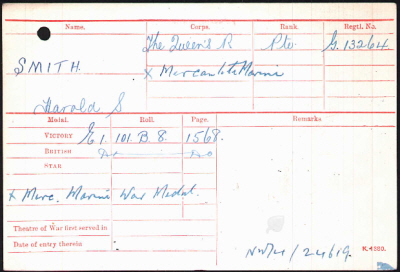 Name. Corps. Rank. Regtl. No.
The Queen's R Pte G.13264
SMITH. x Mercantile Marine
Harold S
Medal. Roll. Page. Remarks
VICTORY E1. 101.B.8. 1568.
BRITISH Do Do
STAR
x Merc. Marine War Medal.
Theatre of War first served in
Date of entry therein
24619. K.4880.